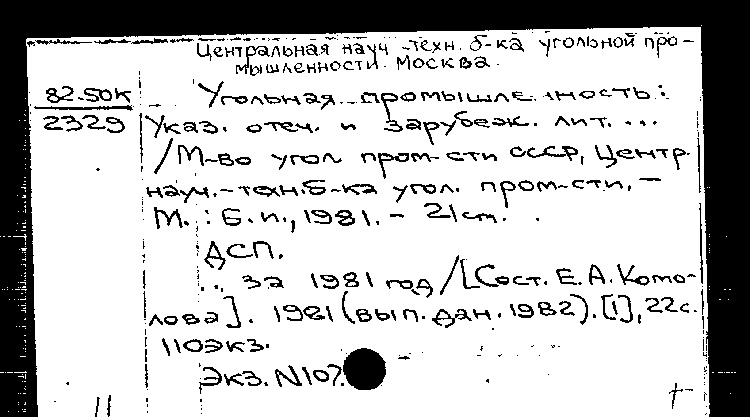 Центральная науч.-техн. б-ка угольной про-
мышленности. Москва.
82.50К
2329
Угольная промышленность:
Указ. отеч. и зарубеж. лит. ...
/М-во угол пром-сти СССР, Центр.
науч.-техн. б-ка угол. пром-сти. –
М. : Б. и., 1981. – 21 см.
ДСП.
... за 1981 год / [Сост. Е. А. Комо-
лова]. 1981 (вып. дан. 1982). [1], 22 с.
110 экз.
Экз. N107.